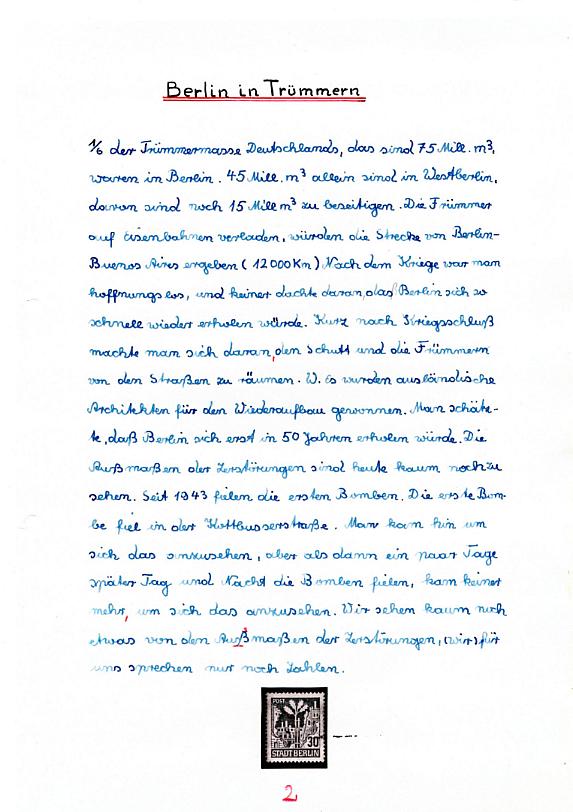 Berlin in Trümmern
1/6 der Trümmermasse Deutschlands, das sind 75 Mill. m³,
waren in Berlin. 45 Mill. m³ allein sind in Westberlin,
davon sind noch 15 Mill m³ zu beseitigen. Die Trümmer
auf Eisenbahnen verladen, würden die Strecke von Berlin-
Buenos Aires ergeben (12000 Km) Nach dem Kriege war man
hoffnungslos, und keiner dachte daran, das Berlin sich so
schnell wieder erholen würde. Kurz nach Kriegsschluß
machte man sich daran, den Schutt und die Trümmern
von den Straßen zu räumen. W. Es wurden ausländische
Architekten für den Wiederaufbau gewonnen. Man schätz-
te, daß Berlin sich erst in 50 Jahren erholen würde. Die
Außmaßen der Zerstörungen sind heute kaum noch zu
sehen. Seit 1943 fielen die ersten Bomben. Die erste Bom-
be fiel in der Kottbusserstraße. Man kam hin um
sich das anzusehen, aber als dann ein paar Tage
später Tag und Nacht die Bomben fielen, kam keiner
mehr, um sich das anzusehen. Wir sehen kaum noch
etwas von den Außmaßen der Zerstörungen, (wir) für
uns sprechen nur noch Zahlen.
POST 1
30
STADT BERLIN
2